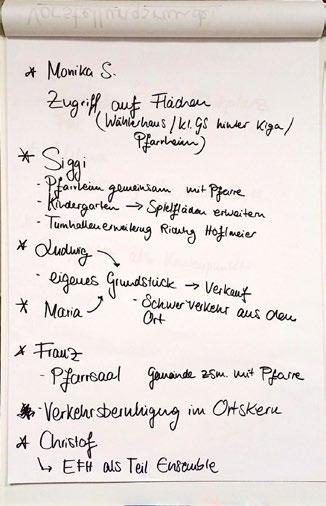 * Monika S.
Zugriff auf Flächen
(Wählerhaus / kl. GS hinter Kiga /
Pfarrheim)
* Siggi
- Pfarrheim gemeinsam mit Pfarre
- Kindergarten → Spielflächen erweitern
- Turnhallenerweiterung Richtung Hoflmeier
* Ludwig
- eigenes Grundstück → Verkauf
* Maria
- Schwerverkehr aus dem
Ort
* Franz
- Pfarrsaal Gemeinde zsm. mit Pfarre
- Verkehrsberuhigung im Ortskern
* Christof
↳ EFH als Teil Ensemble